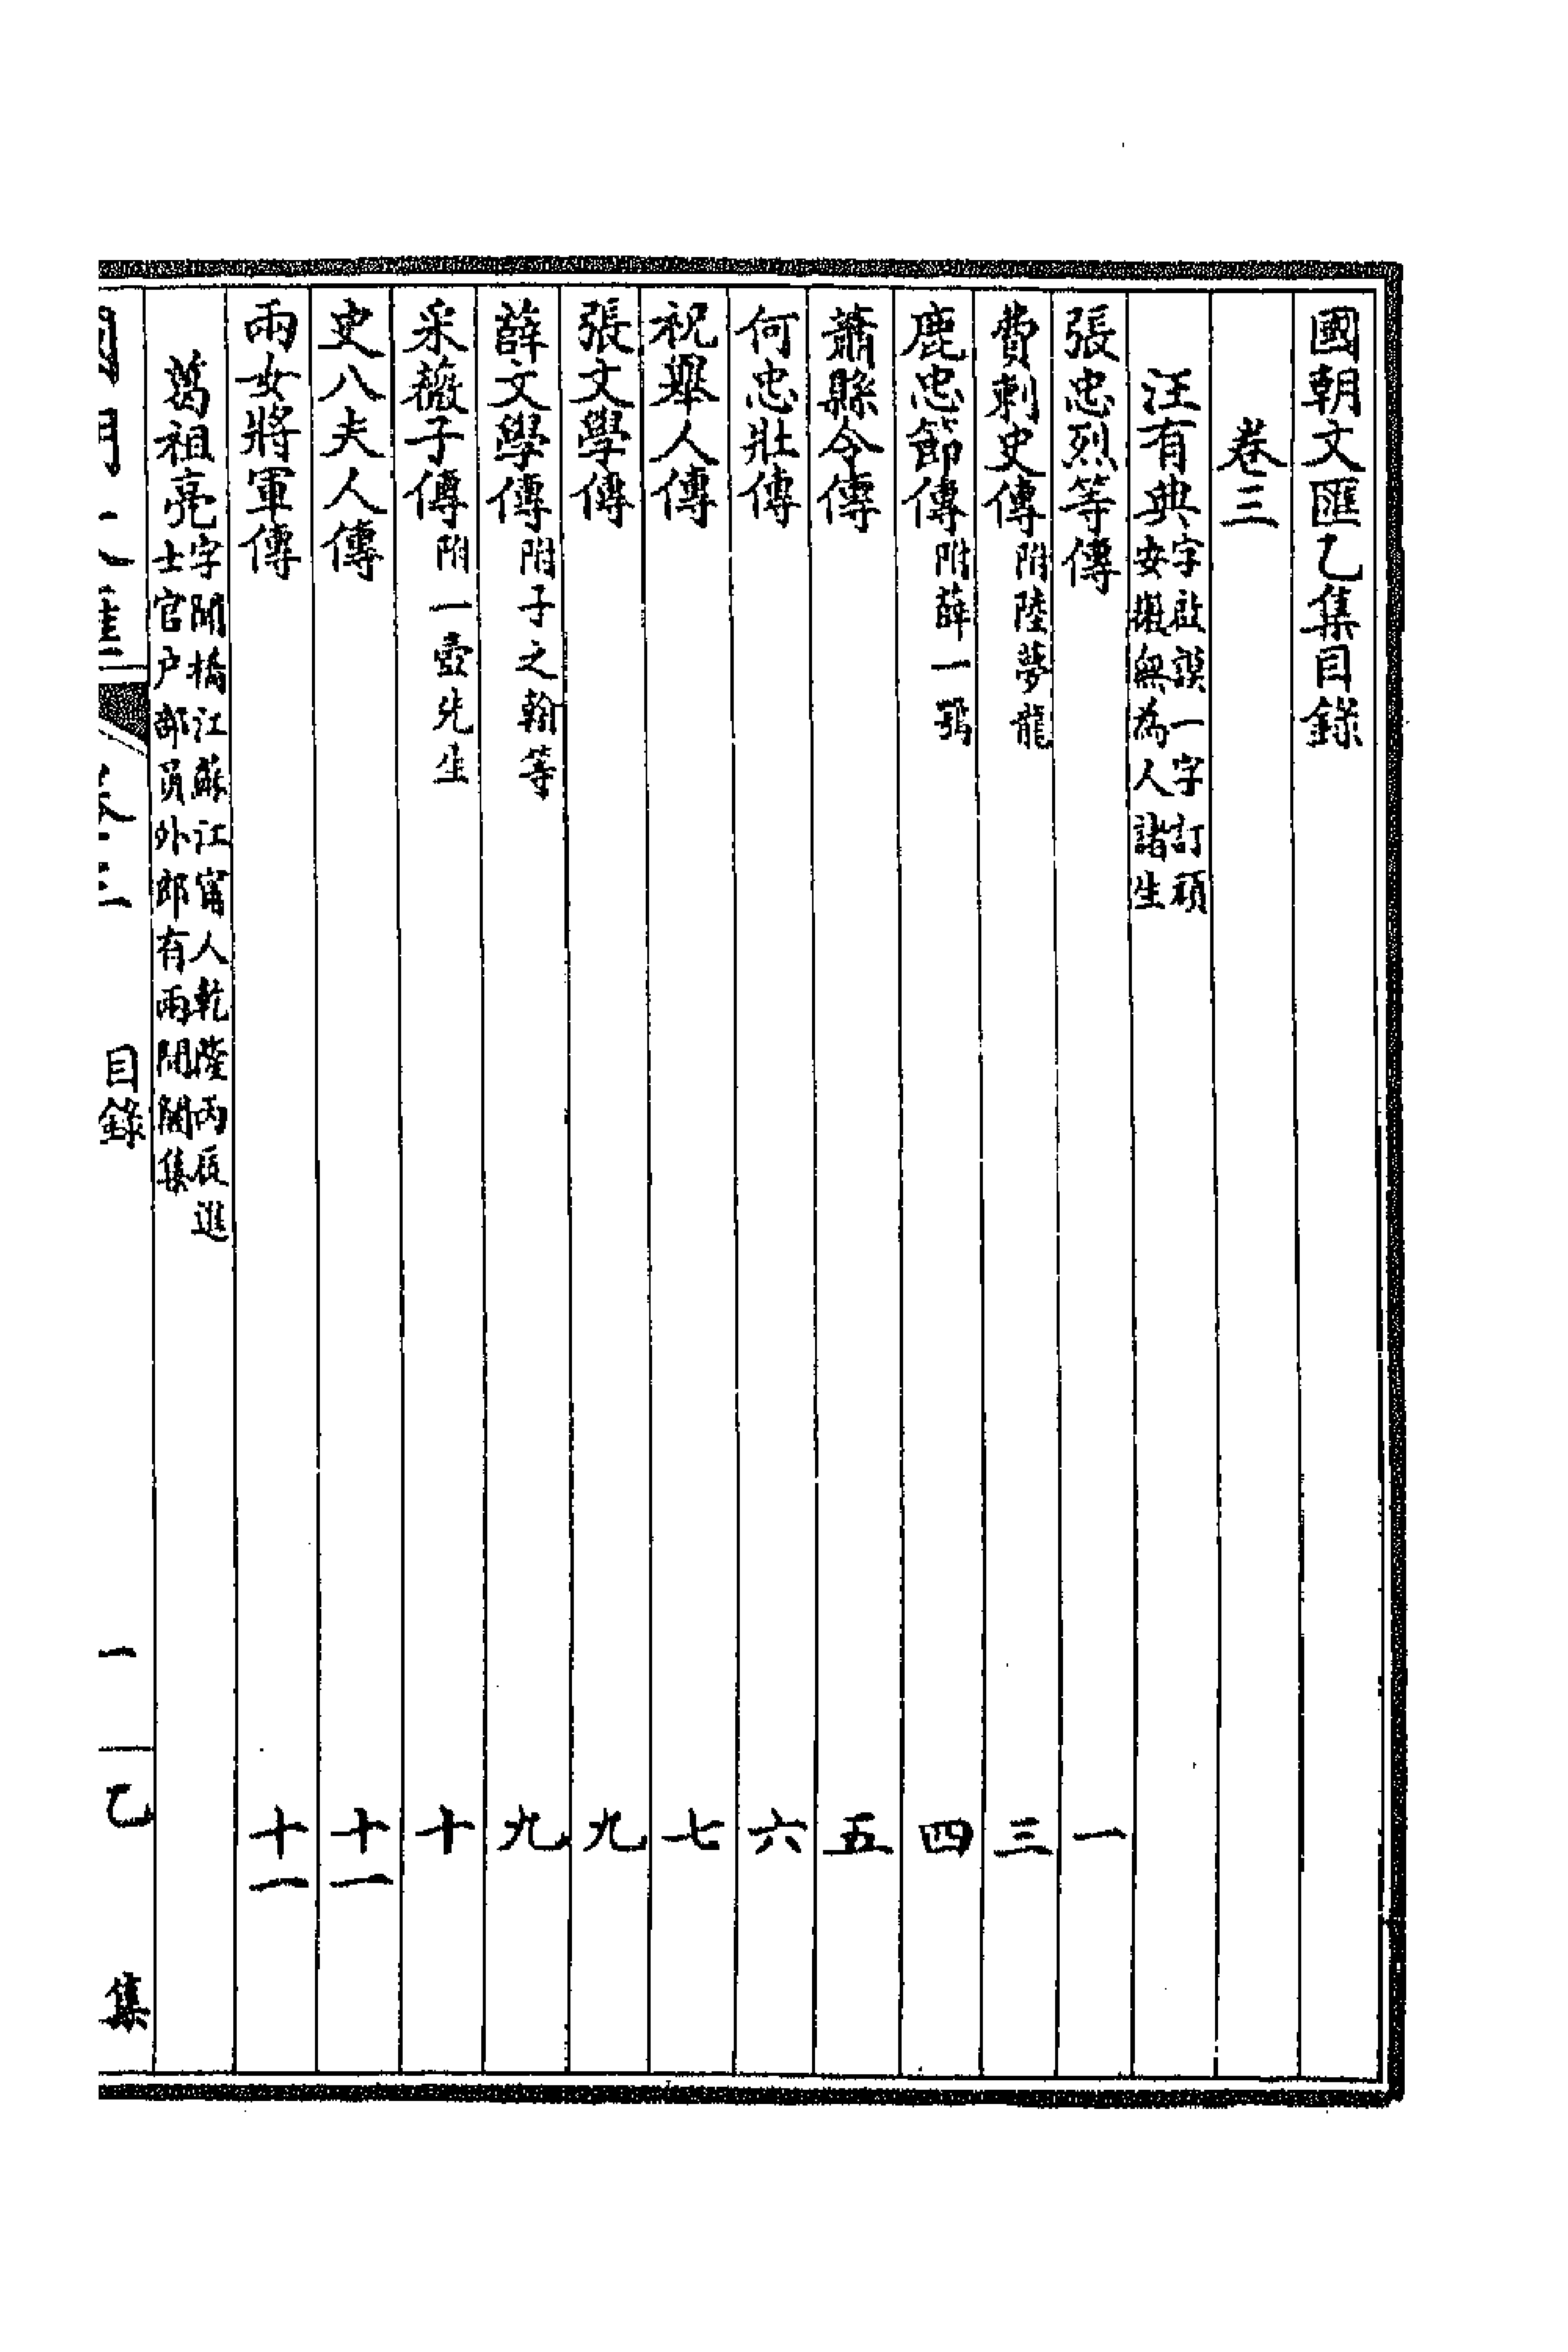 國朝文匯乙集目錄
卷三
汪有典字啟謨一字訂頑
安徽無為人諸生
張忠烈等傳 一
費刺史傳附陸夢龍 三
鹿忠節傳附薛一鶚 四
蕭縣令傳 五
何忠壯傳 六
祝舉人傳 七
張文學傳 九
薛文學傳附子之翰等 九
采薇子傳附一壺先生 十
史八夫人傳 十一
兩女將軍傳 十一
葛祖亮字聞橋江蘇江甯人乾隆丙辰進
士官户部員外郎有兩間閣集
目錄 一 乙 集